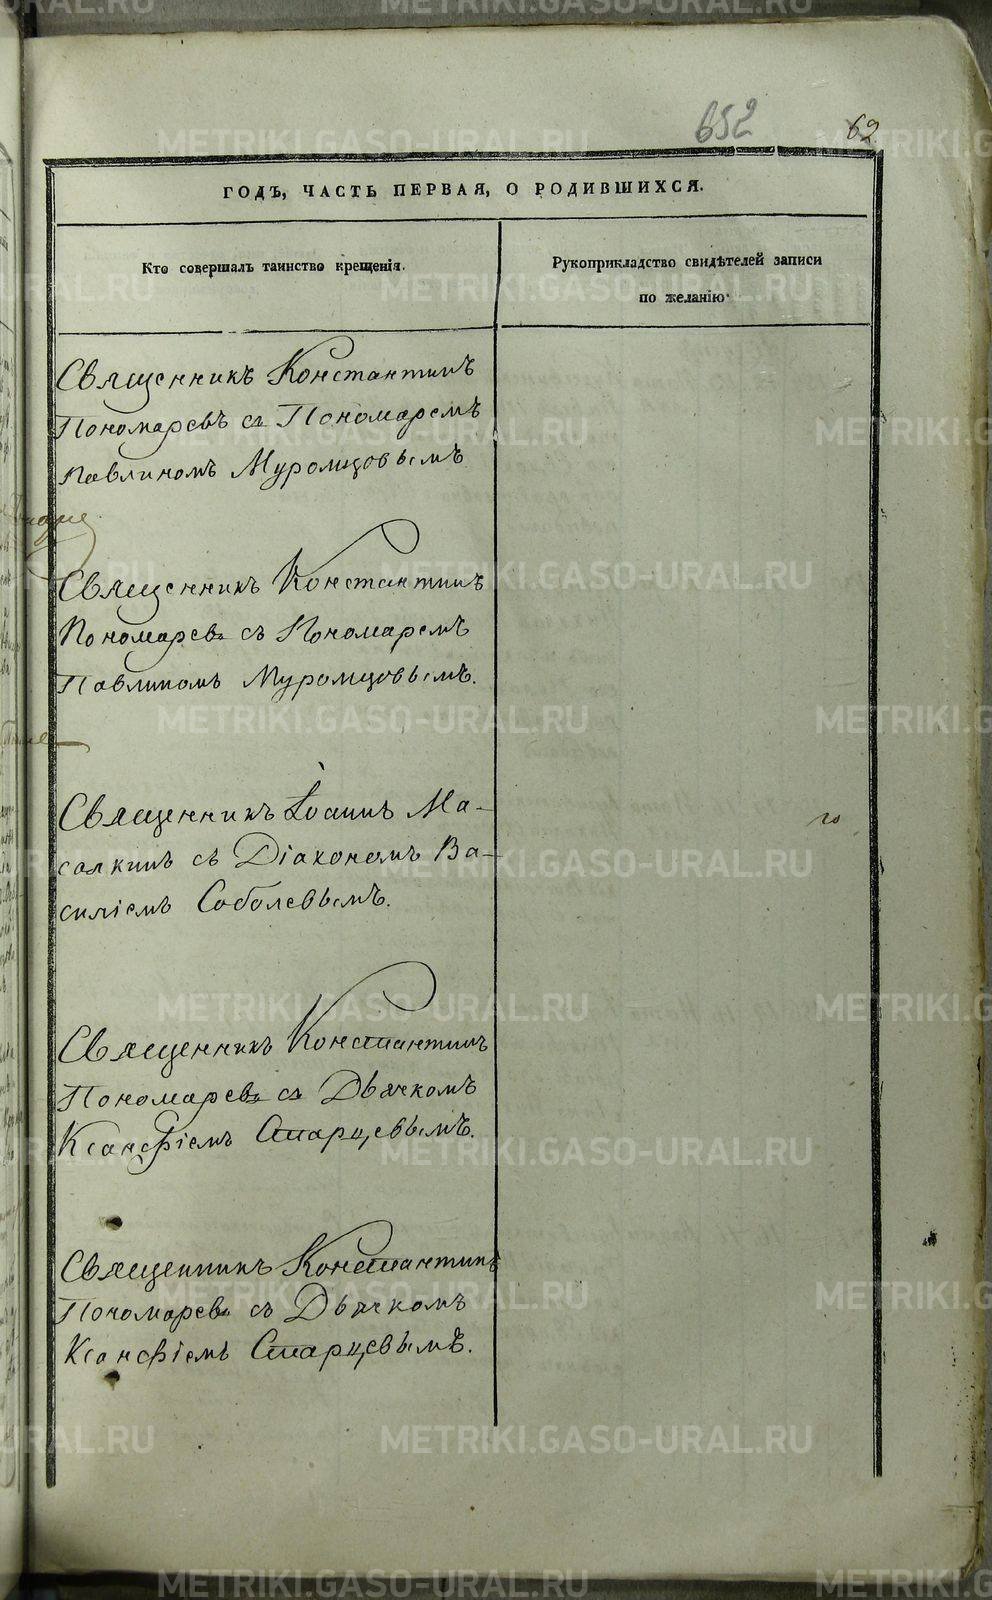 652
62
ГОДЪ, ЧАСТЬ ПЕРВАЯ, О РОДИВШИХСЯ.
Кто совершалъ таинство крещенія.
Рукоприкладство свидѣтелей записи
по желанію.
Священникъ Константинъ
Пономаревъ съ Пономаремъ
Павлиномъ Муромцовымъ
Священникъ Константинъ
Пономаревъ съ Пономаремъ
Павлиномъ Муромцовымъ.
Священникъ Іоаннъ Ма-
салкинъ съ Діакономъ Ва-
силіемъ Соболевымъ.
го
Священникъ Константинъ
Пономаревъ съ Дьячкомъ
Ксанѳіемъ Старцевымъ.
Священникъ Константинъ
Пономаревъ съ Дьячкомъ
Ксанѳіемъ Старцевымъ.
METRIKI.GASO-URAL.RU